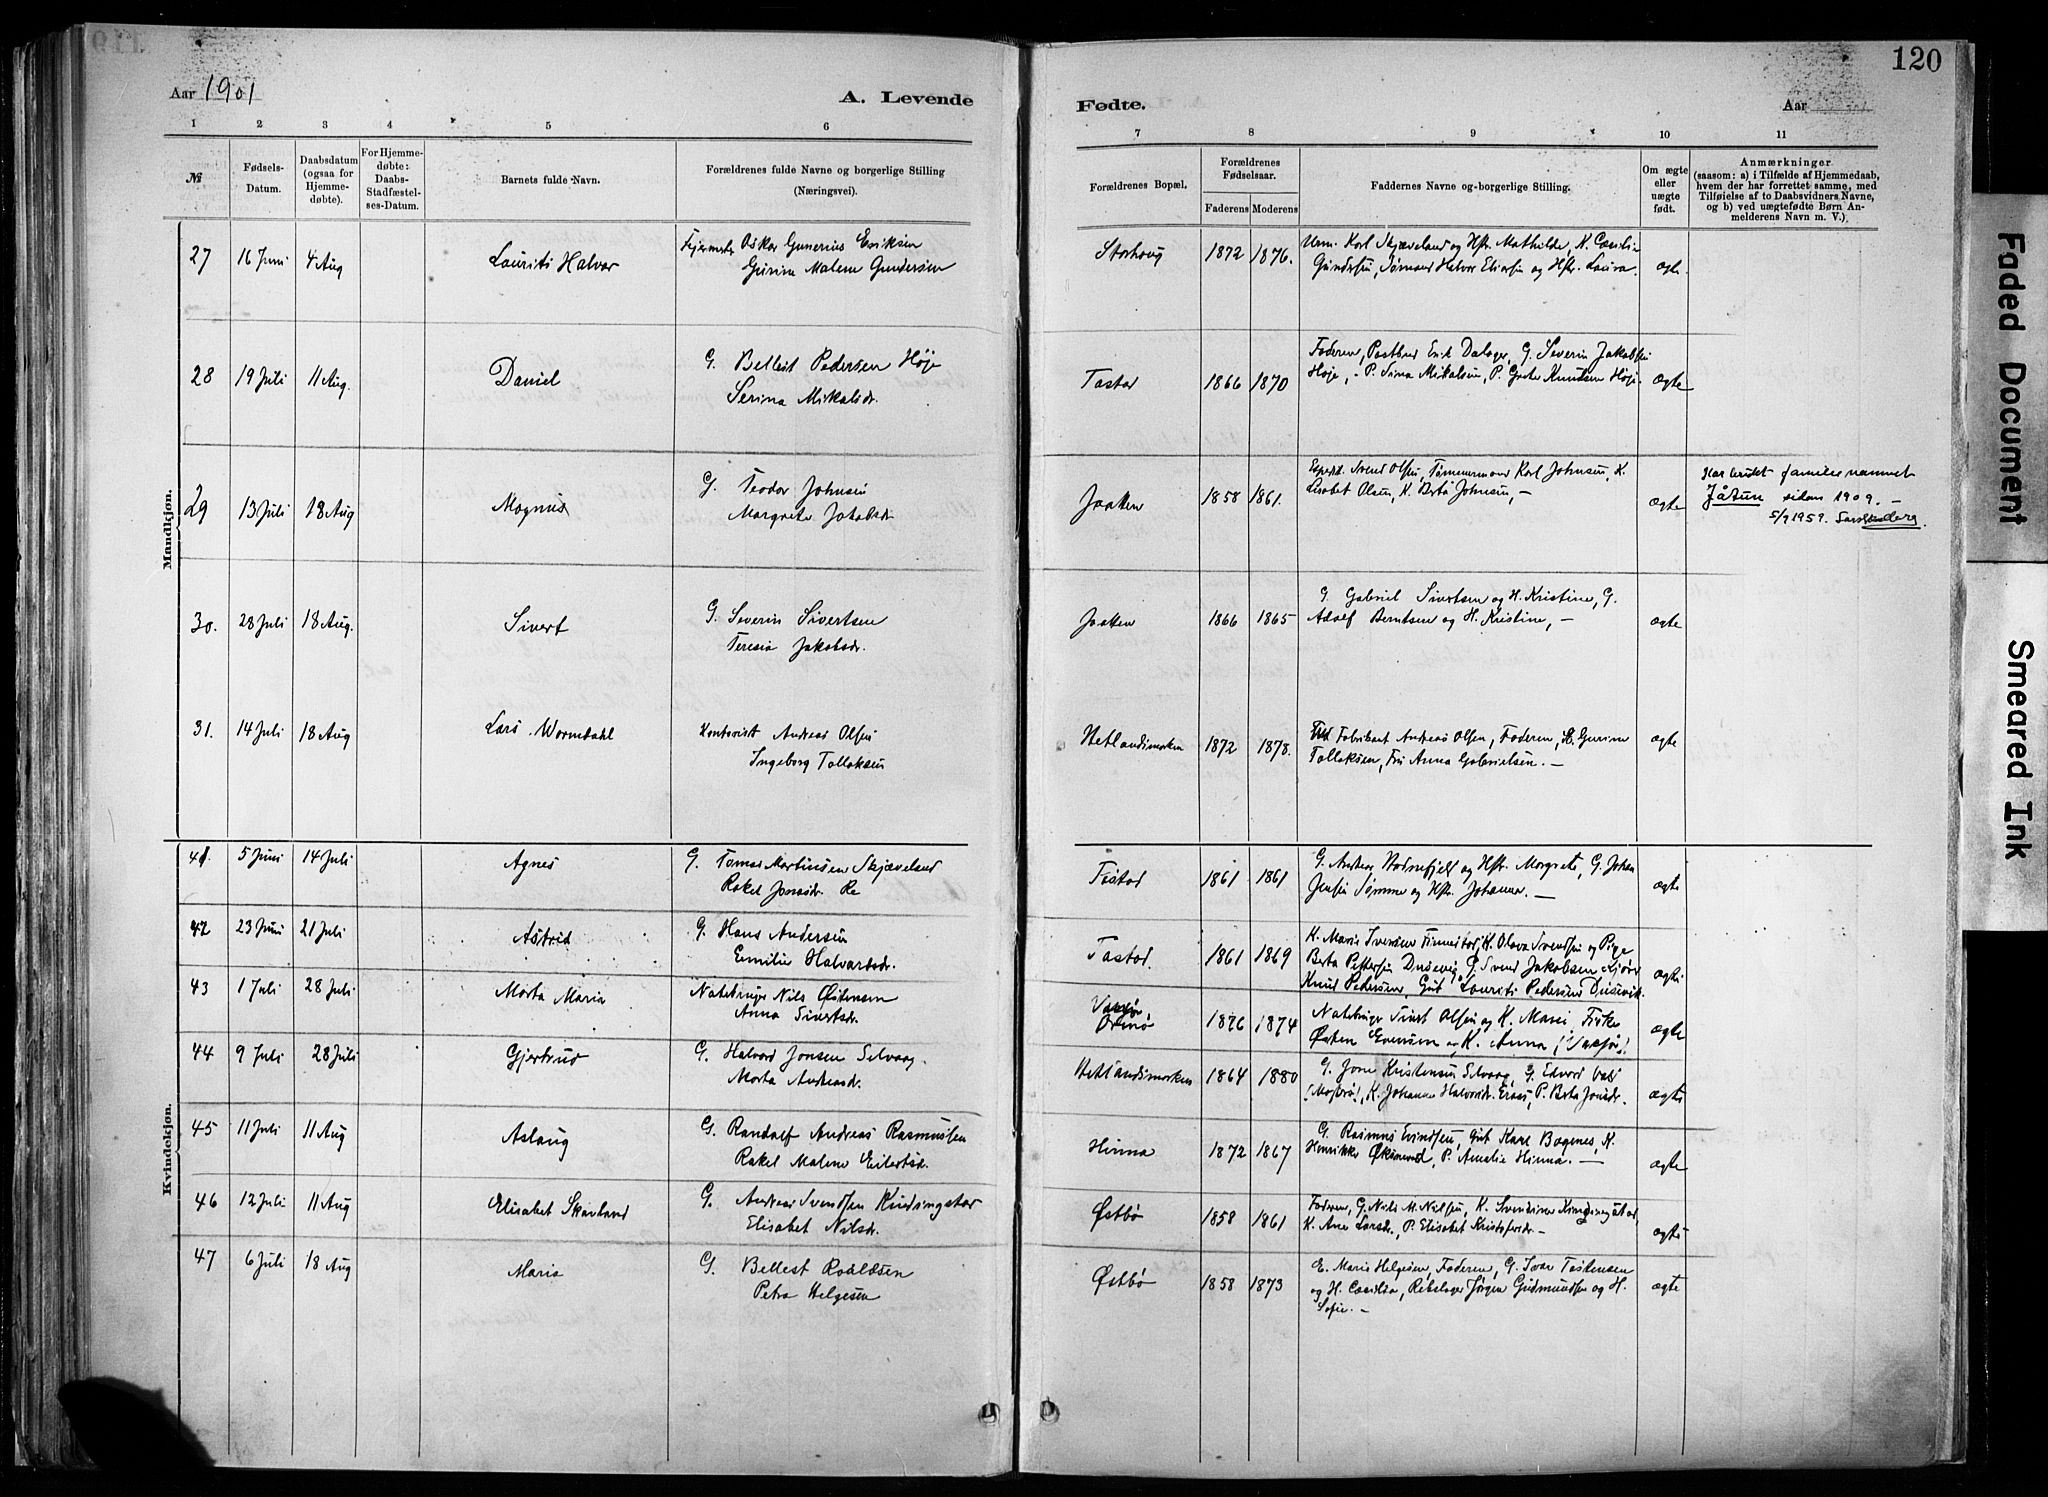 120
Aar 1901
A. Levende
Fødte.
Aar
1 2 3 4 5 6 7 8 9 10 11
№
Fødsels-
Datum.
Daabsdatum
(ogsaa for
Hjemme-
døbte).
For Hjemme-
døbte:
Daabs-
Stadfæstel-
ses-Datum.
Barnets fulde Navn.
Forældrenes fulde Navne og borgerlige Stilling
(Næringsvei).
Forældrenes Bopæl.
Forældrenes
Fødselsaar.
Faderens Moderens
Faddernes Navne og borgerlige Stilling.
Om ægte
eller
uægte
født.
Anmærkninger
(saasom: a) i Tilfælde af Hjemmedaab,
hvem der har forrettet samme, med
Tilføielse af to Daabsvidners Navne,
og b) ved uægtefødte Børn An-
melderens Navn m. V.).
Mandkjøn.
27 16 Juni 4 Aug Lauritz Halvar
Oskar Gunerius Eriksen
Gurine Malene Gundersen
Storhaug 1872 1876.
Karl Skjæveland og Hstr. Mathilde, K. Cecilie
Gundersen, Sømand Halvor Eliassen og Hstr. Laura.
ægte.
28 19 Juli 11 Aug. Daniel
G. Bellest Pedersen Høje
Serina Mikalsdr.
Tastad 1866 1870
Faderen, Postbud Erik Dalager, G. Severin Jakobsen
Høje, - P. Sina Mikalsen, P. Grete Knudsen Høje
ægte
29 13 Juli 18 Aug Magnus
G. Teodor Johnsen
Margrete Jakobsdr
Jaatten 1858 1861.
Svend Olsen, Tømmermand Karl Johnsen, K.
Lisabet Olsen, K. Berta Johnsen, -
ægte
Har brukt familienamnet
Jåtun sidan 1909. -
5/9 1959.
30. 28 Juli 18 Aug. Sivert
G. Severin Sivertsen
Teresia Jakobsdr.
Jaatten 1866 1865
G. Gabriel Sivertsen og H. Kristine, G.
Adolf Berntsen og H. Kristine, -
ægte
31. 14 Juli 18 Aug Lars Wormdahl
Kontorist Andreas Olsen
Ingeborg Tollaksen
Hetlandsmarken 1872 1878.
Fabrikant Andreas Olsen, Faderen, H. Gurine
Tollaksen, Frk Anna Gabrielsen. -
ægte
Kvindekjøn.
41. 5 Juni 14 Juli Agnes
G. Tomas Martinsen Skjæveland
Rakel Jonasdr. Re
Tastad 1861 1861
G. Andreas Hodnefjell og Hstr. Margrete, G. Johan
Jensen Sømme og Hstr. Johanna. -
ægte
42 23 Juni 21 Juli Astrid
G. Hans Andersen
Emilie Halvardsdr.
Tastad. 1861 1869
K. Marie Iversen Finnestad, K. Olava Svendsen og Pige
Berta Pettersen Dusevig, G. Svend Jakobsen
Knud Pedersen, Gut Lauritz Pedersen Dusevik.
ægte
43 1 Juli 28 Juli Marta Maria
Nils Østensen
Anna Sivertsdr.
Ormø 1876 1874
Sivert Olsen og K. Marie, Fisker
Østen Evensen og K. Anna
ægte
44 9 Juli 28 Juli Gjertrud
G. Halvard Jonsen Selvaag.
Marta Andreasdr.
Hetlandsmarken 1864 1880
G. Jone Kristensen Selvaag, G. Edvard
(Mosterø), K. Johanne Halvorsdr. P. Berta Jonsdr.
ægte
45 11 Juli 11 Aug Aslaug
G. Randolf Andreas Rasmussen
Rakel Malene Eilertsdr.
Hinna 1872 1867
G. Rasmus Eivindsen, Gut Karl Bogenes, K.
Henrikke P. Amalie Hinna. -
ægte
46 12 Juli 11 Aug Elisabet Skavland
G. Andreas Svendsen Kindingstad
Elisabet Nilsdr.
Østbø 1858 1861
Faderen, G. Nils M. Nilsen, K. Svendine Kindingstad,
K. Ane Larsdr., P. Elisabet Kristofersdr. -
ægte
47 6 Juli 18 Aug Maria
G. Bellest Roaldsen
Petra Helgesen
Østbø 1858 1873
E. Marie Helgesen, Faderen, G. Ivar Tostensen
og H. Cecilia, Rebslager Jørgen Gudmundsen og H.
Sofie. -
ægte
Faded Document
Smeared Ink